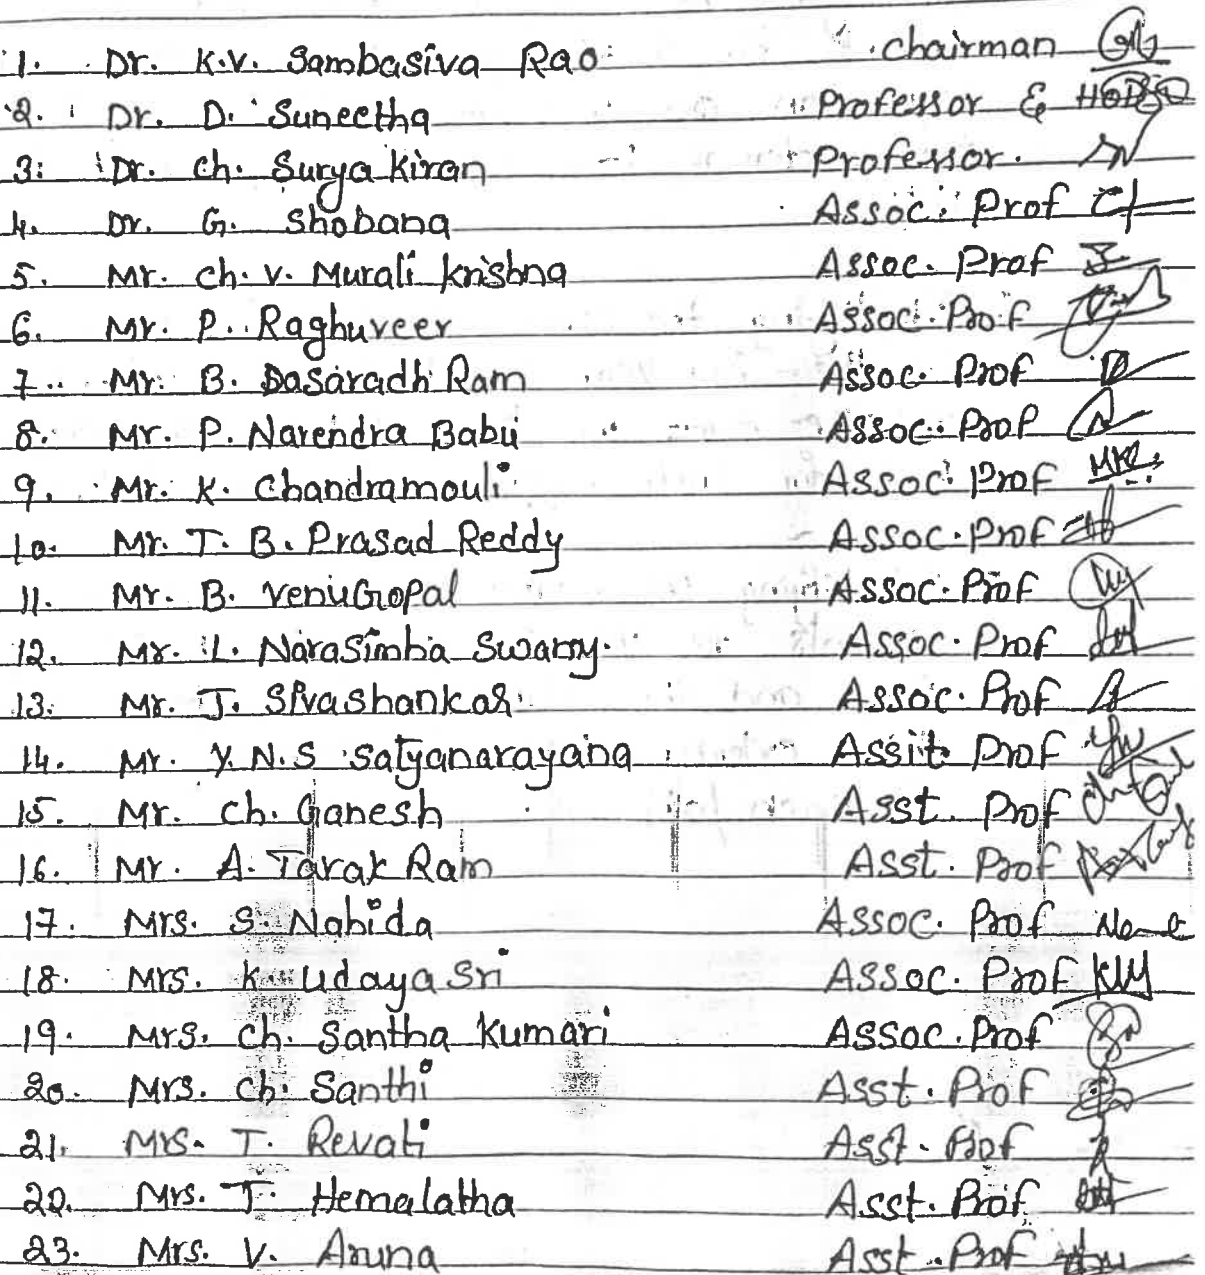 1. Dr. K.V. Sambasiva Rao chairman
2. Dr. D. Suneetha Professor & HOD
3. Dr. ch. Surya Kiran Professor.
4. Dr. G. Shobana Assoc. Prof
5. Mr. ch. v. Murali krishna Assoc. Prof
6. Mr. P. Raghuveer Assoc. Prof
7. Mr. B. Dasaradh Ram Assoc. Prof
8. Mr. P. Narendra Babu Assoc. Prof
9. Mr. K. Chandramouli Assoc. Prof
10. Mr. T. B. Prasad Reddy Assoc. Prof
11. Mr. B. VenuGopal Assoc. Prof
12. Mr. L. Narasimha Swamy. Assoc. Prof
13. Mr. J. Sivashankar Assoc. Prof
14. Mr. Y. N. S Satyanarayana Assit Prof
15. Mr. Ch. Ganesh Asst. Prof
16. Mr. A. Tarak Ram Asst. Prof
17. Mrs. S. Nahida Assoc. Prof
18. Mrs. K. Udaya Sri Assoc. Prof
19. Mrs. Ch. Santha Kumari Assoc. Prof
20. Mrs. Ch. Santhi Asst. Prof
21. Mrs. T. Revati Asst. Prof
22. Mrs. T. Hemalatha Asst. Prof
23. Mrs. V. Aruna Asst. Prof